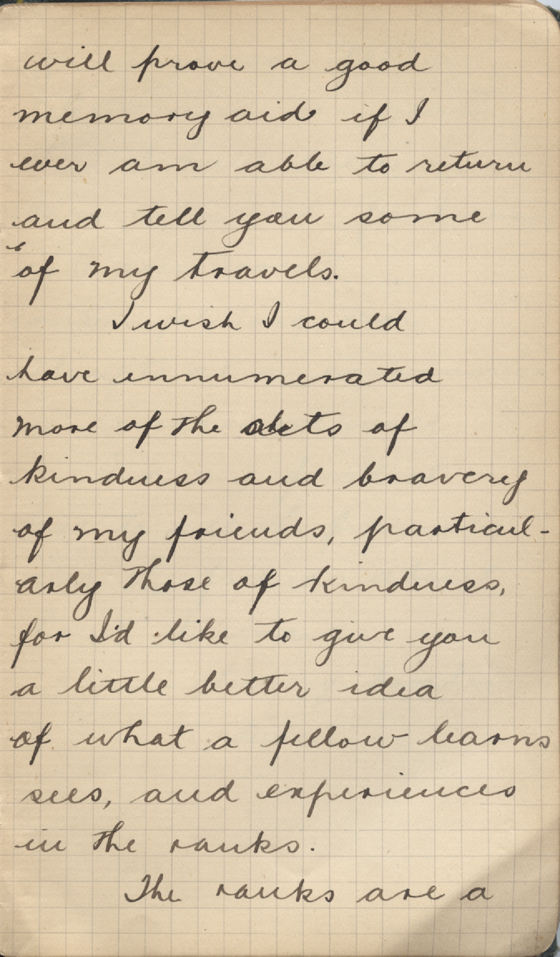 will prove a good
memory aid if I
ever am able to return
and tell you some
of my travels.
I wish I could
have innumerated
more of the acts of
kindness and bravery
of my friends, particul-
arly those of kindness,
for I'd like to give you
a little better idea
of what a fellow learns
sees, and experiences
in the ranks.
The ranks are a